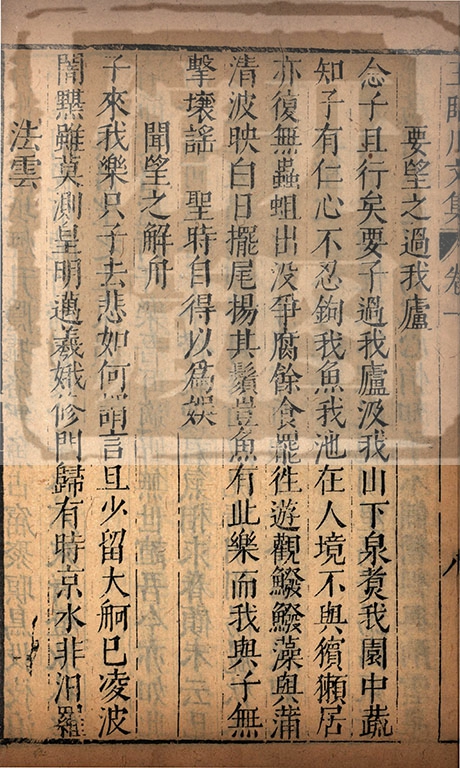 要望之過我廬
念子且行矣要子過我廬汲我山下泉煑我園中蔬
知子有仁心不忍鉤我魚我池在人境不與獱獺居
亦復無蟲蛆出沒爭腐餘食罷徃遊觀鱍鱍藻與蒲
清波映白日擺尾揚其鬚豈魚有此樂而我與子無
擊壤謠聖時自得以為娛
聞望之解舟
子來我樂只子去悲如何謂言且少留大舸已凌波
闇黮雖莫測皇明邁羲娥修門歸有時京水非汨羅
法雲